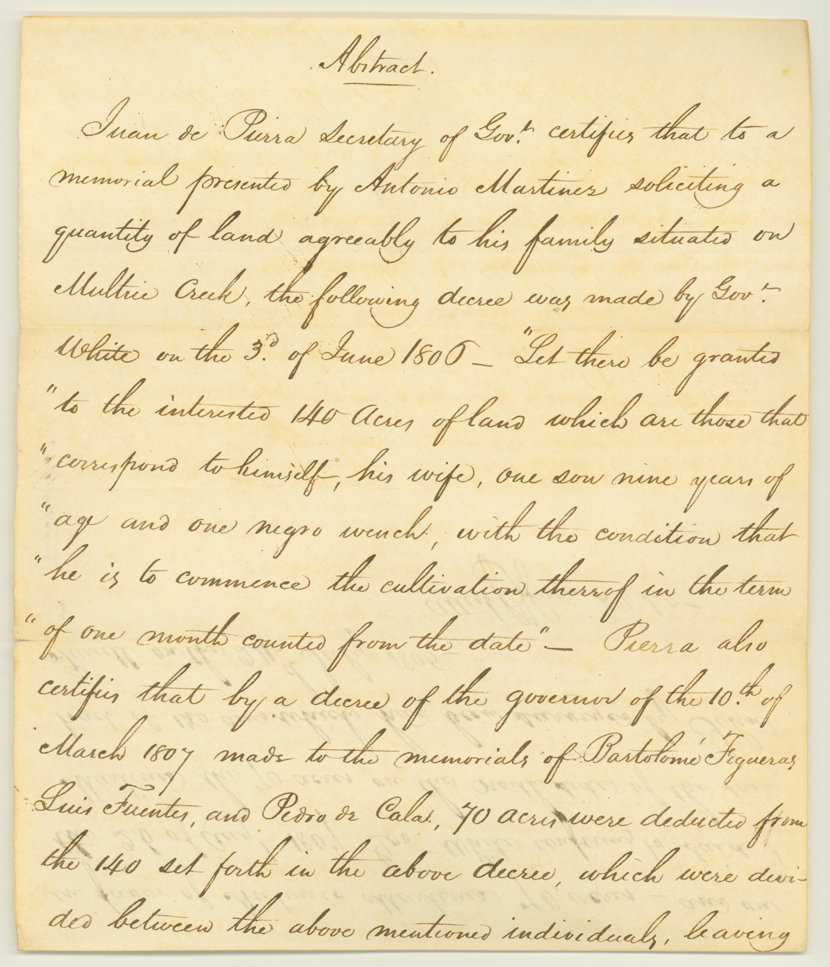 Abstract.
Juan de Pierra Secretary of Gov.t certifies that to a
memorial presented by Antonio Martinez soliciting a
quantity of land agreeably to his family situated on
Multrie Creek, the following decree was made by Gov.r
White on the 3.rd of June 1806 — "Let there be granted
"to the interested 140 Acres of land which are those that
"correspond to himself, his wife, one son nine years of
"age and one negro wench, with the condition that
"he is to commence the cultivation thereof in the term
"of one month counted from the date" — Pierra also
certifies that by a decree of the governor of the 10.th of
March 1807 made to the memorials of Bartolomé Figueras
Luis Fuentes, and Pedro de Cala, 70 acres were deducted from
the 140 set forth in the above decree, which were divi-
ded between the above mentioned individuals, leaving